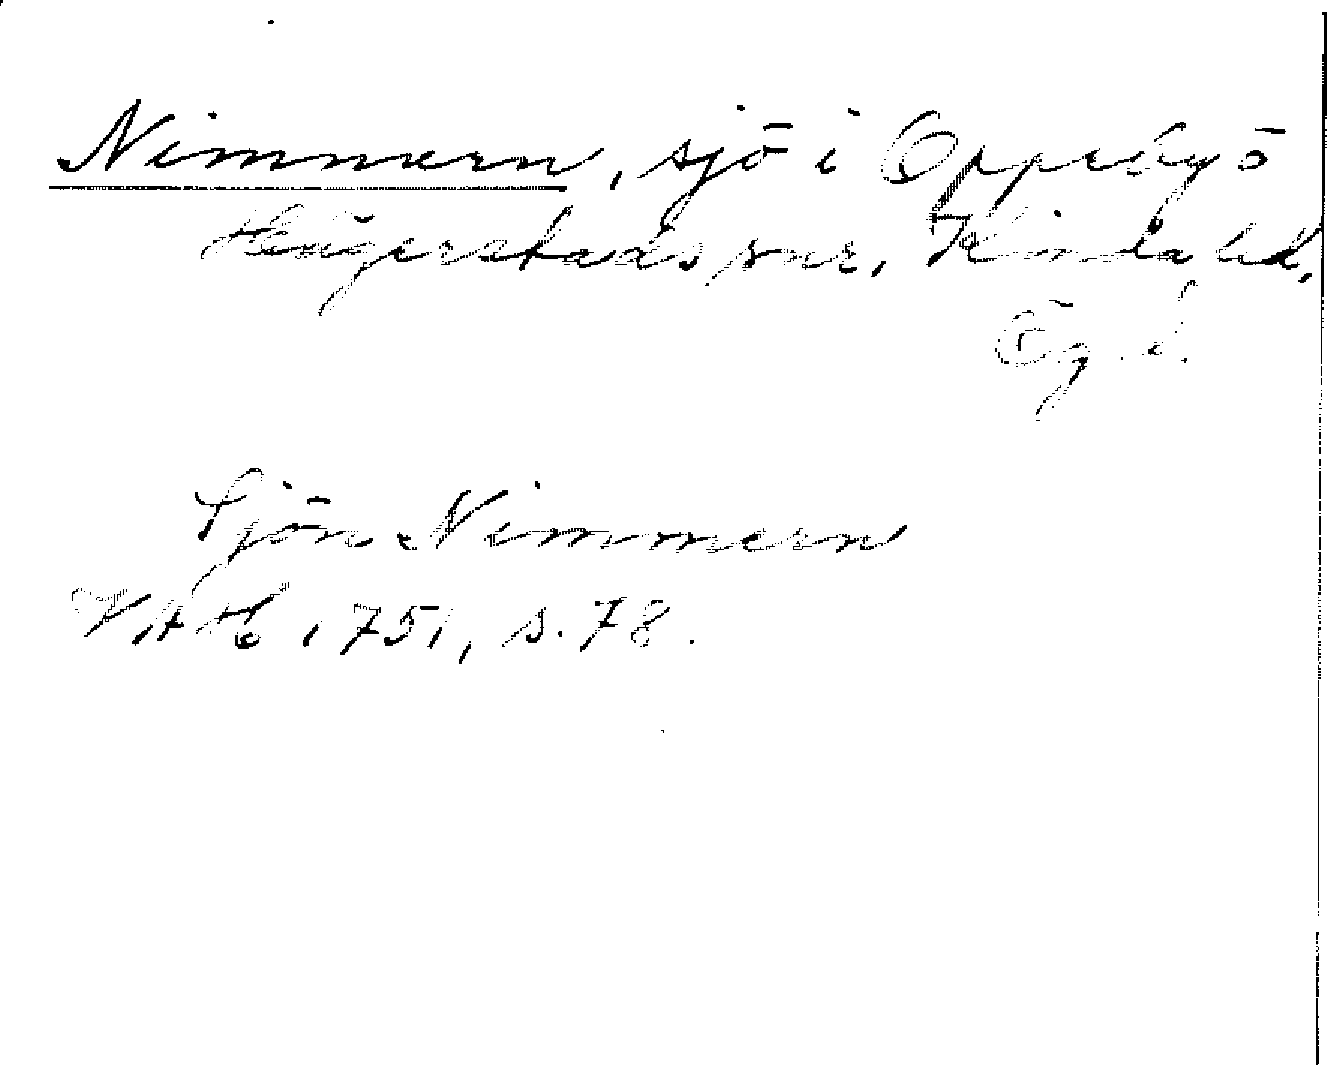 Nimmern, sjö i Oppeby o
Hägerstads snr, Kinda hd,
Ög. l.
Sjön Nimmern
VAH 1751, s. 78.